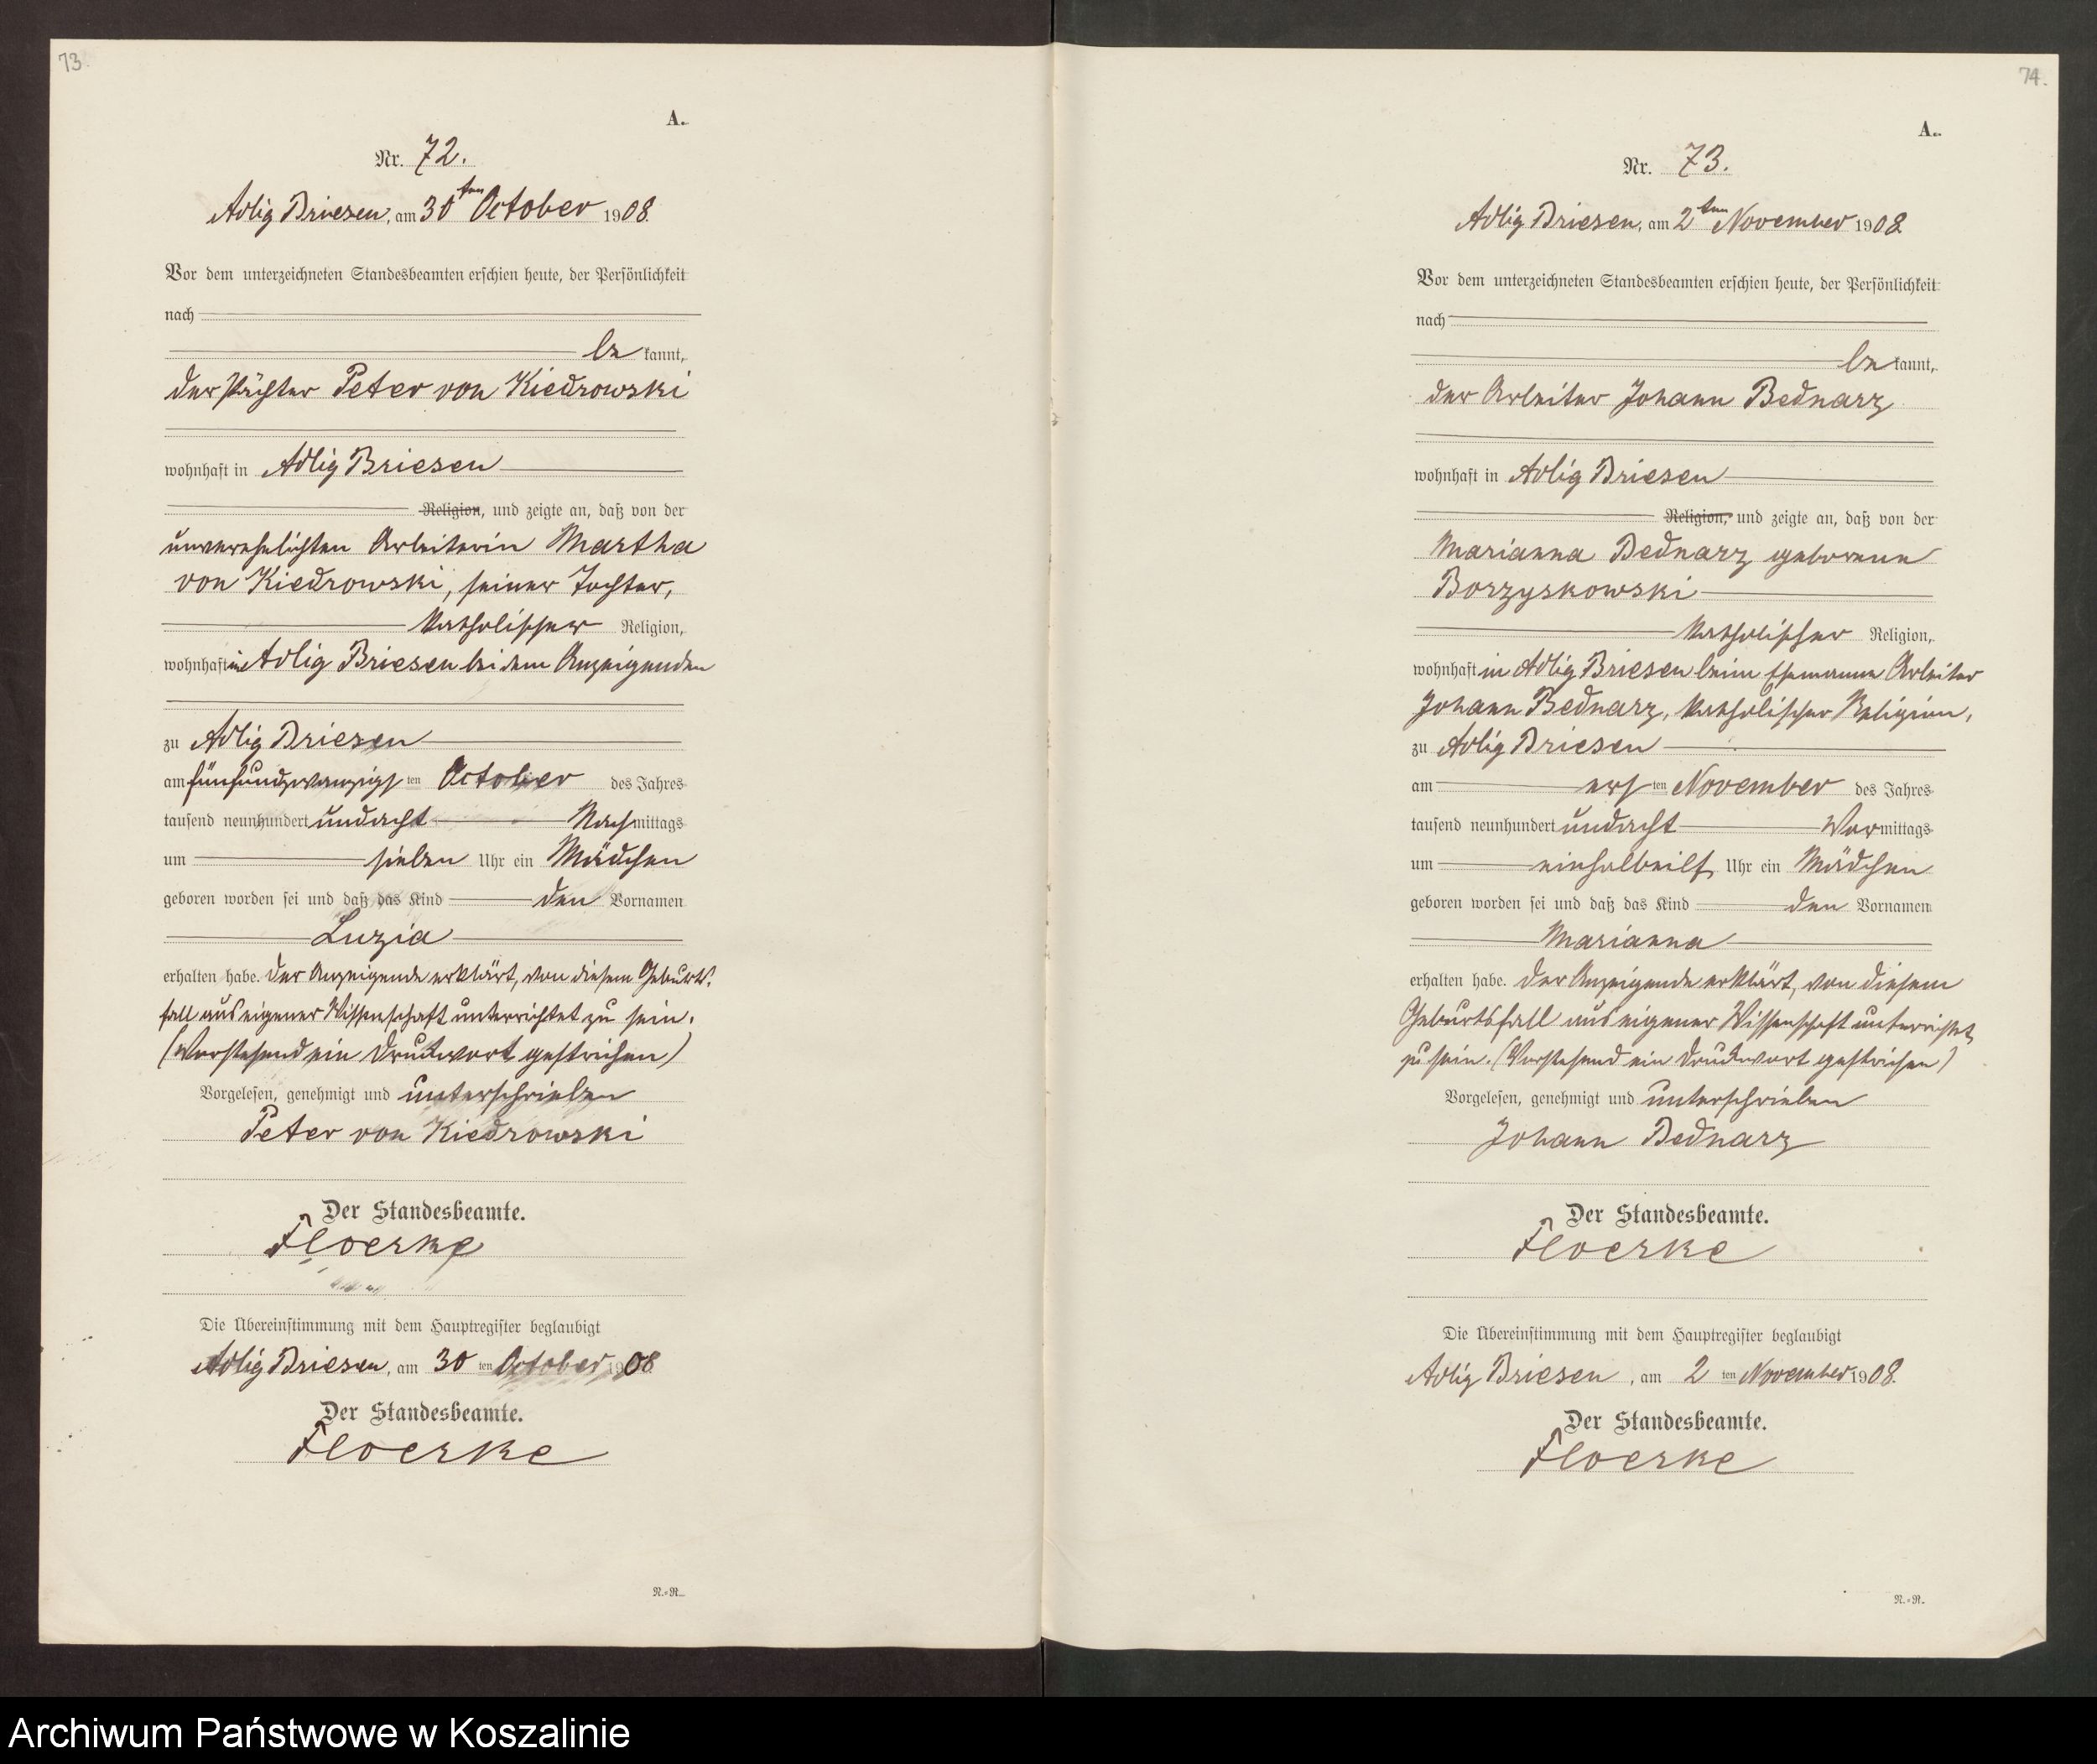 73.
A.
Nr. 72.
Adlig Briesen, am 30ten October 1908.
Vor dem unterzeichneten Standesbeamten erschien heute, der Persönlichkeit
nach
be kannt,
der Pächter Peter von Kiedrowski
wohnhaft in Adlig Briesen
Religion, und zeigte an, daß von der
unverehelichten Arbeiterin Martha
von Kiedrowski, seiner Tochter,
katholischer Religion,
wohnhaft in Adlig Briesen bei dem Anzeigenden
zu Adlig Briesen
am fünfundzwanzigs ten October des Jahres
tausend neunhundert undacht Nachmittags
um sieben Uhr ein Mädchen
geboren worden sei und daß das Kind den Vornamen
Luzia
erhalten habe. Der Anzeigende erklärt, von diesem Geburts-
fall aus eigener Wissenschaft unterrichtet zu sein.
(Vorstehend ein Druckwort gestrichen)
Vorgelesen, genehmigt und unterschrieben
Peter von Kiedrowski
Der Standesbeamte.
Floerke
Die Übereinstimmung mit dem Hauptregister beglaubigt
Adlig Briesen, am 30 ten October 1908.
Der Standesbeamte.
Floerke
N.=R.
74.
A.
Nr. 73.
Adlig Briesen, am 2ten November 1908.
Vor dem unterzeichneten Standesbeamten erschien heute, der Persönlichkeit
nach
be kannt,
der Arbeiter Johann Bednarz
wohnhaft in Adlig Briesen
Religion, und zeigte an, daß von der
Marianna Bednarz geborene
Borzyskowski
katholischer Religion,
wohnhaft in Adlig Briesen beim Ehemanne Arbeiter
Johann Bednarz, katholischer Religion,
zu Adlig Briesen
am ers ten November des Jahres
tausend neunhundert undacht Vormittags
um einhalbeilf Uhr ein Mädchen
geboren worden sei und daß das Kind den Vornamen
Marianna
erhalten habe. Der Anzeigende erklärt, von diesem
Geburtsfall aus eigener Wissenschaft unterrichtet
zu sein. (Vorstehend ein Druckwort gestrichen)
Vorgelesen, genehmigt und unterschrieben
Johann Bednarz
Der Standesbeamte.
Floerke
Die Übereinstimmung mit dem Hauptregister beglaubigt
Adlig Briesen, am 2 ten November 1908.
Der Standesbeamte.
Floerke
N.=R.
Archiwum Państwowe w Koszalinie